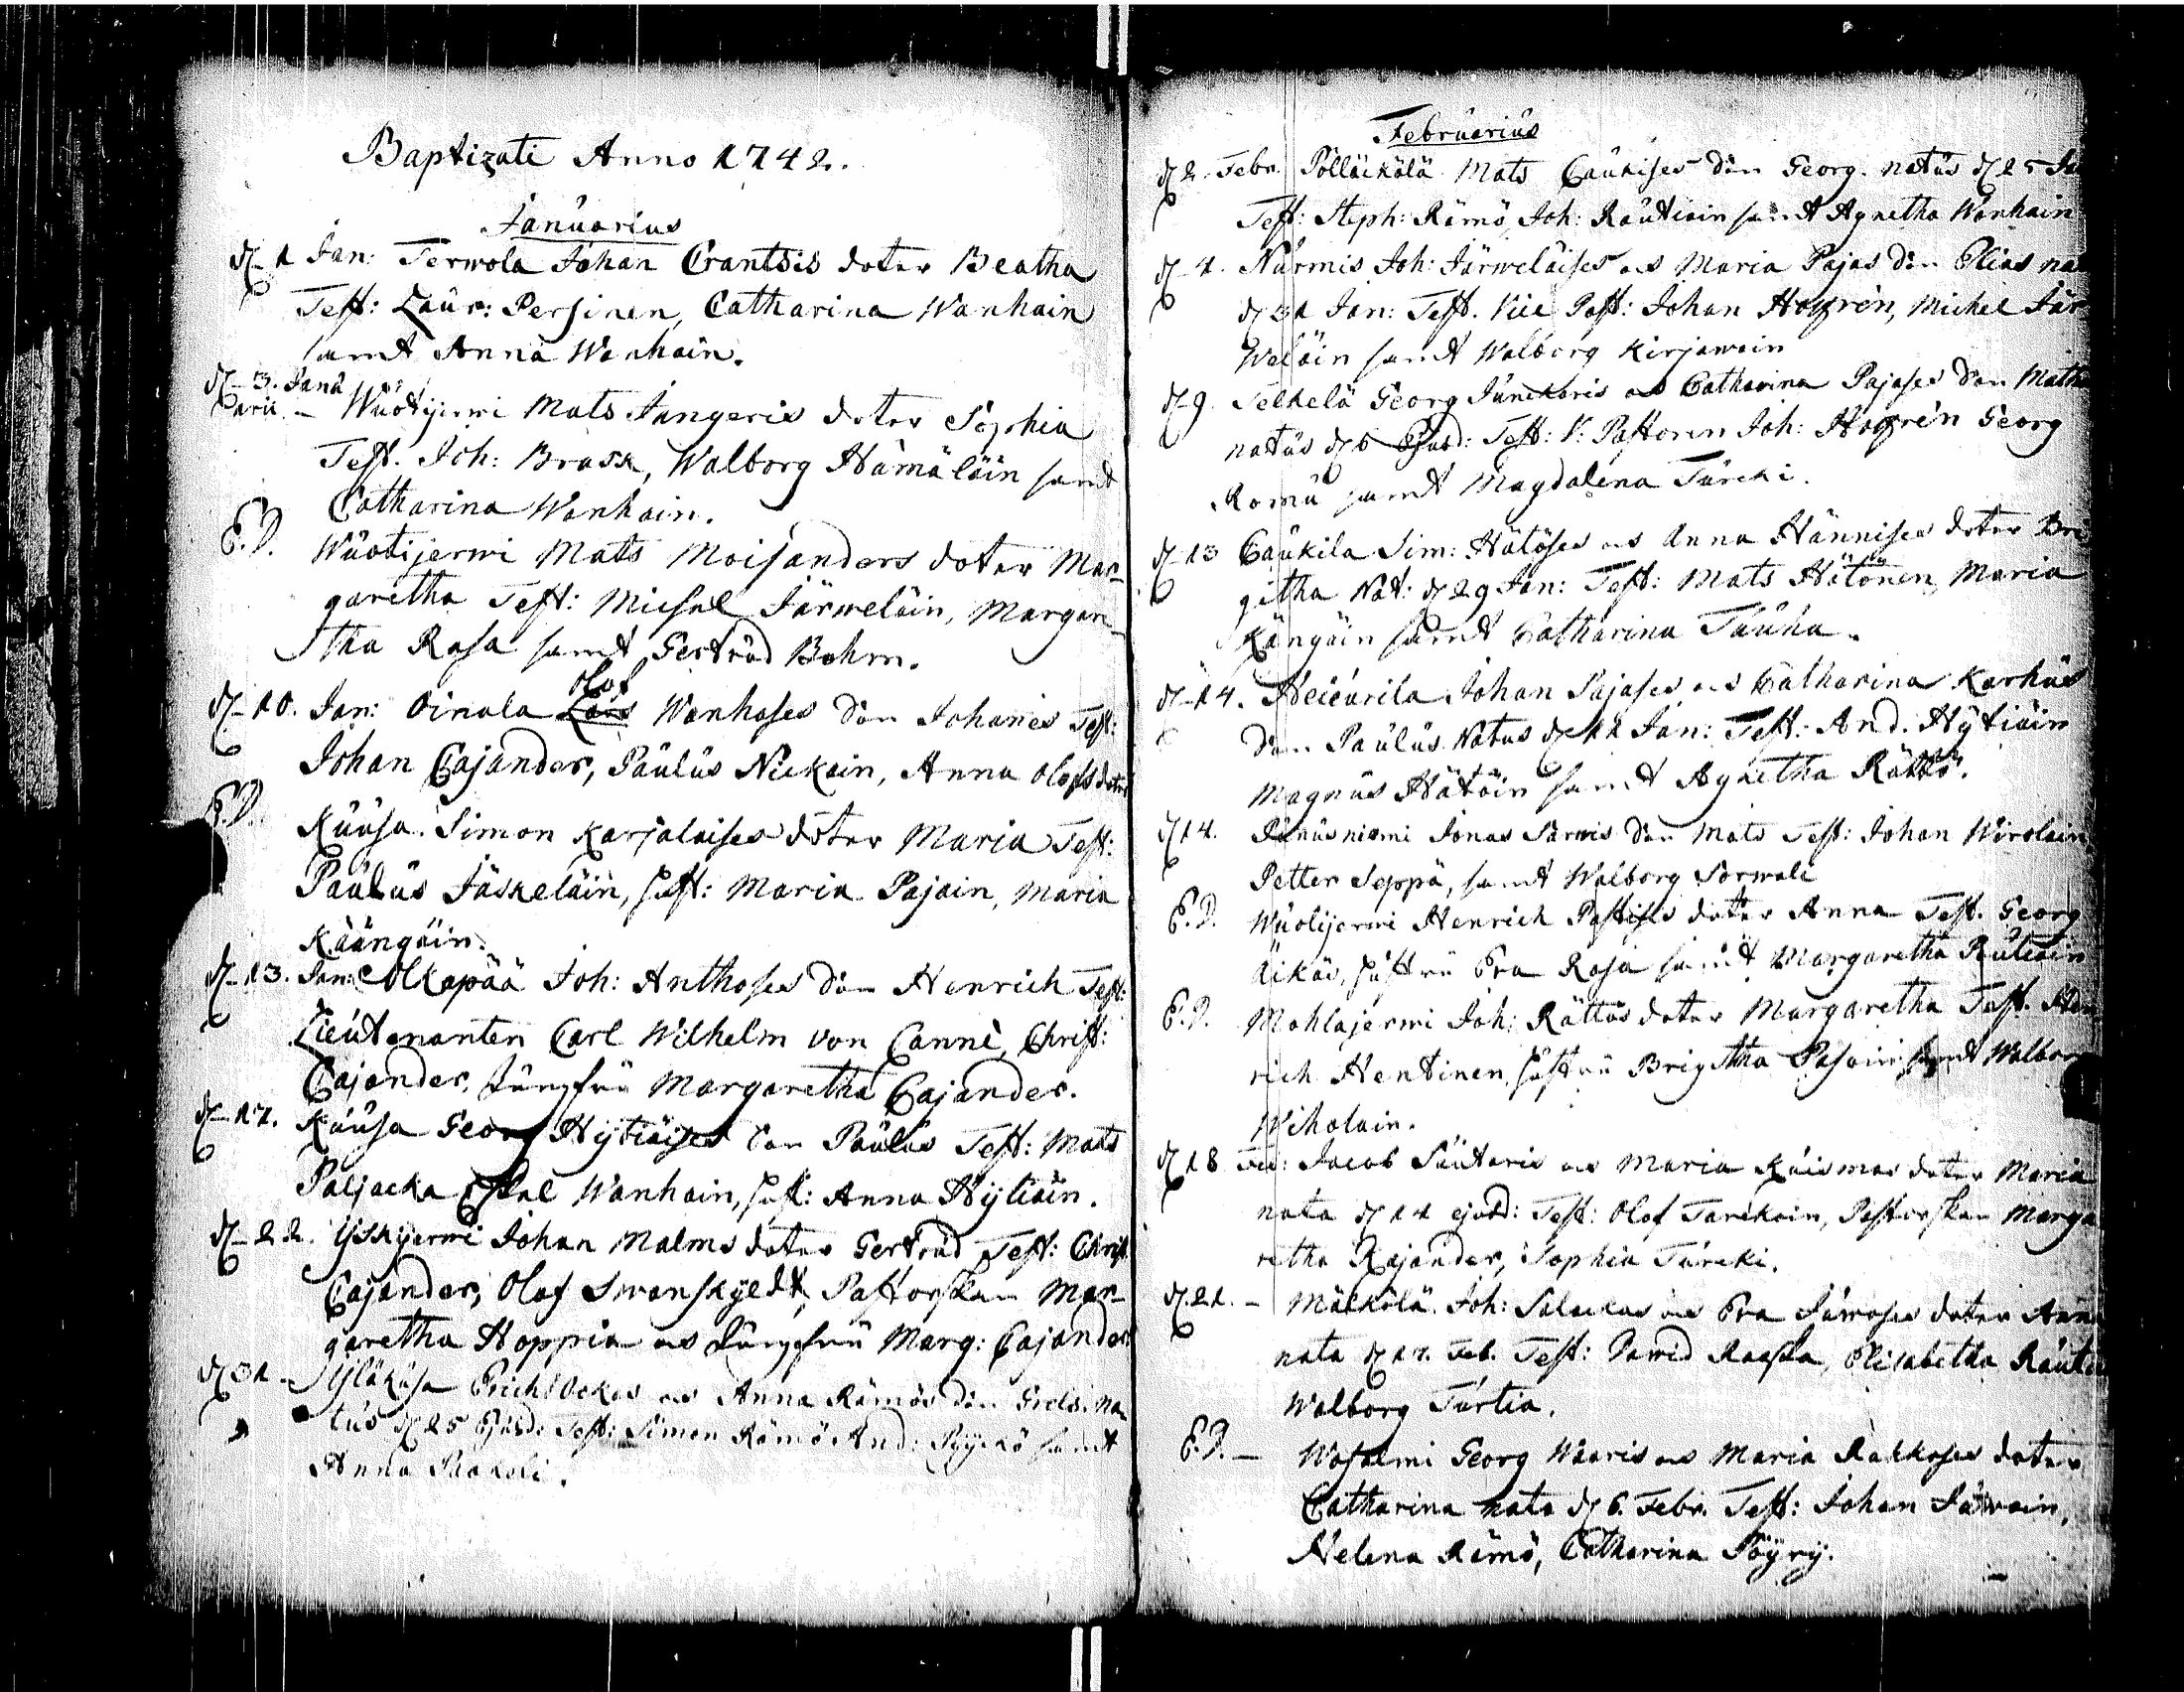 Baptizati Anno 1742.
Januarius
d 1 Jan: Terwola Johan Crantsis doter Beatha
Test: Laur: Persinen, Catharina Wanhain
samt Anna Wanhain.
d 3. Janu
arii - Wuotijerwi Mats Jangeris doter Sophia
Test. Joh: Brask, Walborg Hämäläin samt
Catharina Wanhain.
E.D. Wuotijerwi Mats Moisanders doter Mar-
garetha Test: Michel Järweläin, Margare-
tha Rasa samt Gertrud Bohm.
d 10. Jan: Oinala Olof Wanhases Son Johanes Test:
Johan Cajander, Paulus Nickain, Anna Olofsdoter
E.D. Kuusa. Simon Karjalaises doter Maria Test:
Paulus Jäskeläin, hust: Maria Pajain, Maria
Käängäin.
d 13. Jan: Olkapää Joh: Anthoses Son Henrich Test:
Lieutenanten Carl Wilhelm von Canne, Christ:
Cajander, Jungfru Margaretha Cajander.
d 17. Kuusa Georg Hytiäises Son Paulus Test: Mats
Paljacka Wanhain, hust: Anna Hytiäin.
d 22. Yskijerwi Johan Malms doter Gertrud Test: Christ
Cajander, Olof Swanskyldt, Pastorskan Mar-
garetha Hoppia os Jungfru Marg: Cajander
d 31 - Yläkusa Erich Ockas os Anna Rämös Son Grels. na
tus d 25 Ejusd: Test: Simon Rämö And: Pöyckö samt
Anna Paakoli.
Februarius
d 2. Febr. Pölläckälä Mats Caukises Son Georg. natus d 25 Ja
Test: Steph: Rämö, Joh: Rautiain samt Agnetha Wanhain
d 4. Nurmis Joh: Järweläises os Maria Pajas Son Elias na
d 31 Jan: Test. Vice Past: Johan Hogren, Michel Jär
Weläin samt Walborg Kirjawain
d 9. Telkelä Georg Junckaris os Catharina Pajases Son Math
natus d 5 Ejusd: Test: V: Pastoren Joh: Hogren Georg
Romu samt Magdalena Turcki.
d 13 Caukila Sim: Hätöses os Anna Hännises doter Bri
githa Nat: d 29 Jan: Test: Mats Hätönen, Maria
Kängäin samt Catharina Tauha.
d 14. Heicurila Johan Pajases os Catharina Karhus
Son Paulus Natus d 11 Jan: Test: And. Hytiäin
Magnus Hätöin samt Agnetha Rättö.
d 14. Pänusniemi Jonas Särwis Son Mats Test: Johan Wirolain
Petter Seppä, samt Walborg Sorwali
E.D. Wuotijerwi Henrich Pastises doter Anna Test. Georg
Äikäs, hustru Eva Rasa samt Margaretha Rautiain
E.D. Mohlajerwi Joh: Rättös doter Margaretha Test. Hen
rich Hentinen, hustru Brigitha Pasain samt Walbor
Wiholain.
d 18 Feb: Jacob Suutaris os Maria Kuismas doter Maria
nata d 14 ejusd: Test: Olof Tarckain, Pastorskan Marga
retha Cajander, Sophia Turcki.
d 21. - Mälkölä. Joh: Salackas os Eva Jäwoses doter Anna
nata d 17. Feb. Test: David Raaska, Elisabetha Rauti
Walborg Turtia.
E.D. - Wasalmi Georg Waaris os Maria Rakkoses doter
Catharina nata d 6. Febr. Test: Johan Jäwoin,
Helena Rämö, Catharina Pöyry.